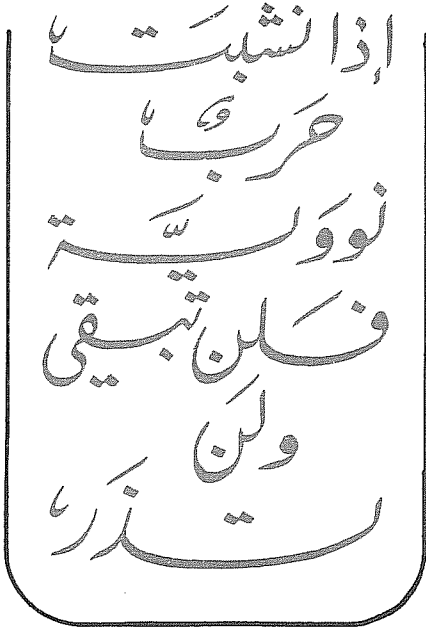 إذا نشبتَ
حَربٌ
نوَويَّة
فَلن تبقي
ولَن
تذَر